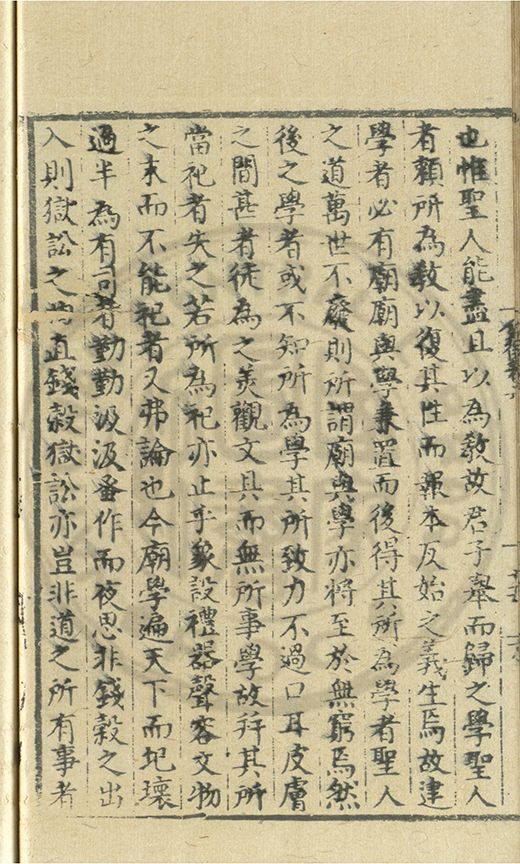 也惟聖人能盡且以為教故君子舉而歸之學聖人
者賴所為教以復其性而報本反始之義生焉故建
學者必有廟廟與學兼置而後得其所為學者聖人
之道萬世不廢則所謂廟與學亦將至於無窮焉然
後之學者或不知所為學其所致力不過口耳皮膚
之間甚者徒為之美觀文具而無所事學故并其所
當祀者失之若所為祀亦止乎象設禮器聲容文物
之末而不能祀者又弗論也今廟學遍天下而圯壞
過半為有司者勤勤汲汲蚤作而夜思非錢穀之出
入則獄訟之曲直錢穀獄訟亦豈非道之所有事者